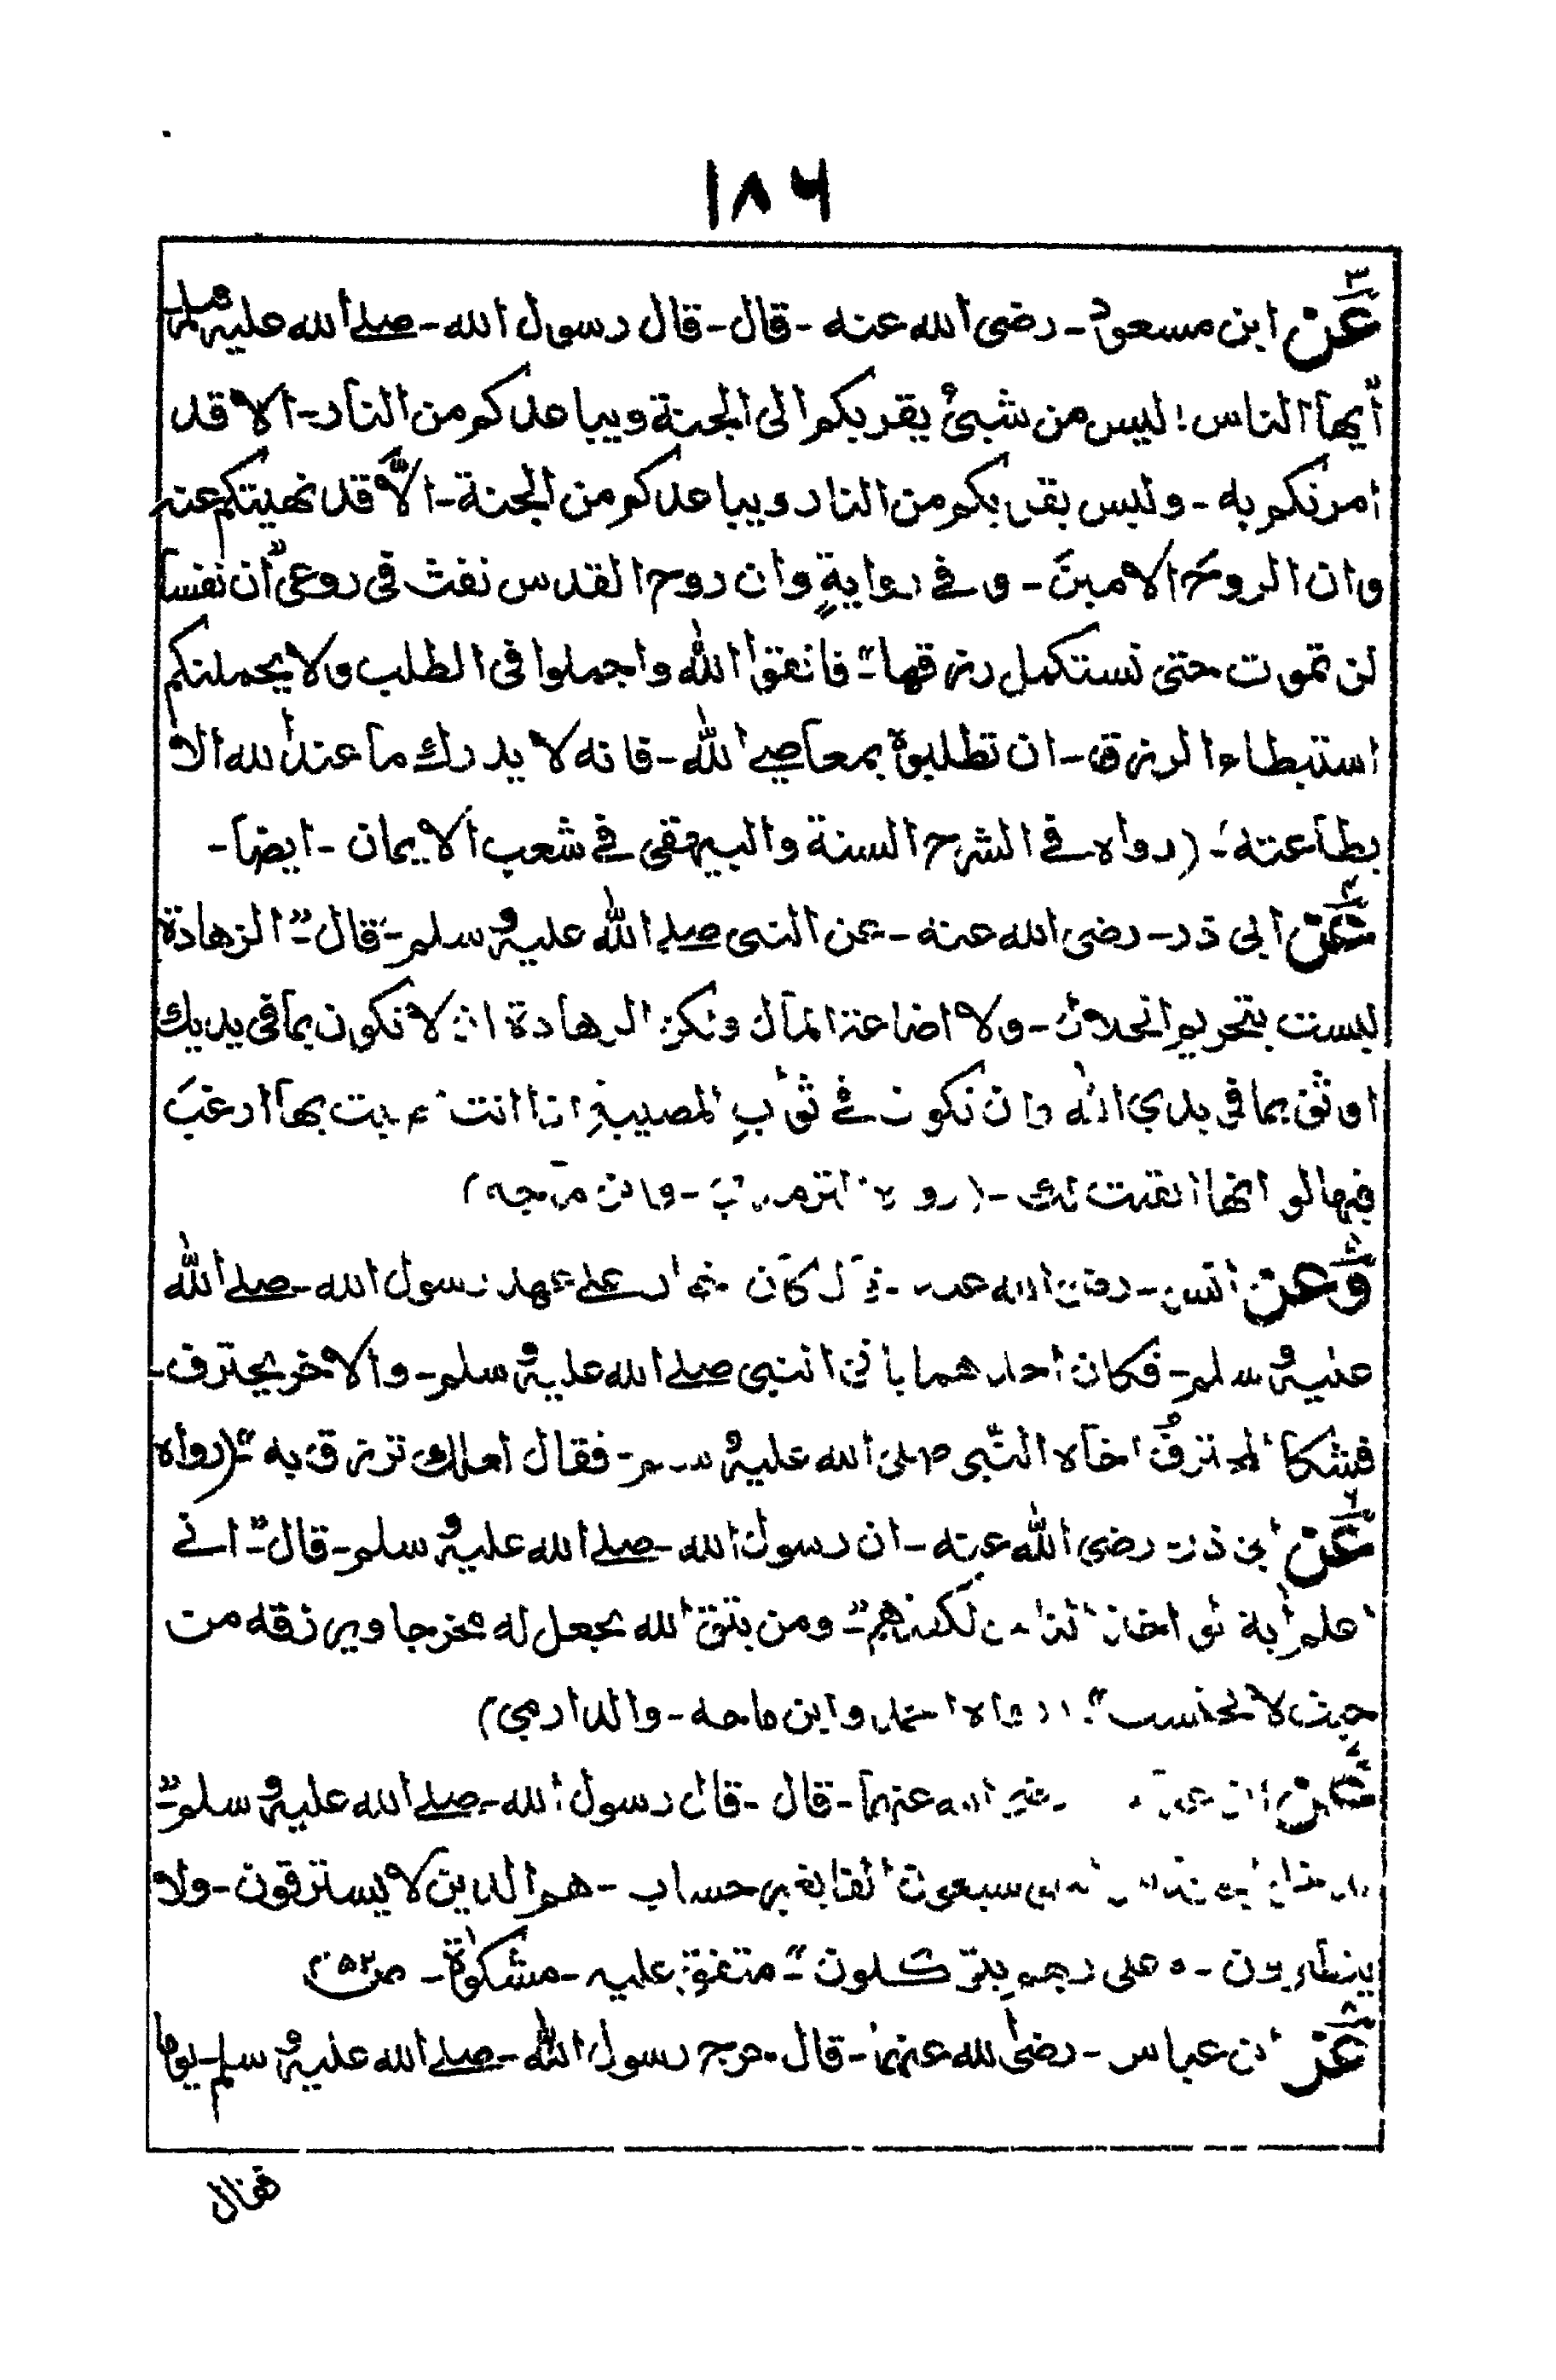 ۱۸۶
۳
عن ابن مسعود - رضی الله عنه - قال - قال رسول الله - صلے الله علیہ وسلم
أیها الناس! لیس من شیئ یقربکم الی الجنة ویباعدکم من النار - الا قد
امرتکم به - ولیس یقربکم من النار ویباعدکم من الجنة - الا قد نهیتکم عنه
وان الروح الامین - و فے روایةٍ وان روح القدس نفث فی روعی "ان نفسا
لن تموت حتی تستکمل رزقها" - فاتقوا الله واجملوا فی الطلب ولا یحملنکم
استبطاء الرزق - ان تطلبوه بمعاصے الله - فانه لا یدرك ما عند الله الا
بطاعته - (رواه فے الشرح السنة والبیهقی فے شعب الایمان - ایضا -
۴
عن ابی ذر - رضی الله عنه - عن النبی صلے الله علیہ وسلم - قال - "الزهادة
لیست بتحریم الحلال - ولا اضاعة المال ولکن الزهادة ان لا تکون بما فی یدیك
اوثق بما فی یدی الله وان تکون فے ثواب المصیبة اذا انت اصبت بها ارغب
فیها لو انها ابقیت لك - (رواه الترمذی - وابن ماجه)
۵
وعن انس - رضی الله عنه - قال کان اخوان علے عهد رسول الله - صلے الله
علیہ وسلم - فکان احدهما یأتی النبی صلے الله علیہ وسلم - والاخر یحترف -
فشکا المحترف اخاه النبی صلی الله علیہ وسلم - فقال لعلك ترزق به" - (رواه
۶
عن ابی ذر - رضی الله عنه - ان رسول الله - صلے الله علیہ وسلم - قال - "انے
اعلم أیة لو اخذ الناس لکفتهم" - ومن یتق الله یجعل له مخرجا ویرزقه من
حیث لا یحتسب" (رواه احمد وابن ماجه - والدارمی)
۷
عن ابن عباس رضی الله عنهما - قال - قال رسول الله - صلے الله علیہ وسلم - "
سبعون الفا بغیر حساب - هم الذین لا یسترقون - ولا
یتطیرون - وعلی ربهم یتوکلون" - متفق علیه - مشکوٰة - ص۴۵۲
۸
عن ابن عباس - رضی الله عنهما - قال - خرج رسول الله - صلے الله علیہ وسلم - یوما
فقال